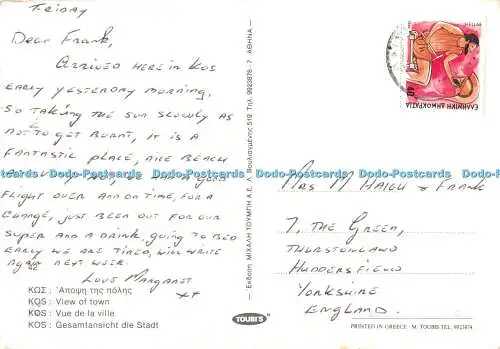 Friday
Dear Frank,
Arrived here in Kos
early yesterday morning,
so taking the sun slowly as
not to get burnt, it is a
fantastic place, nice beach
had a good
flight over and on time, for a
change, just been out for our
supper and a drink, going to bed
early we are tired, will write
again next week.
Love Margaret
xx
ΚΩΣ : Ἄποψη τῆς πόλης
KOS : View of town
KOS : Vue de la ville
KOS : Gesamtansicht die Stadt
Ἔκδοση ΜΙΧΑΛΗ ΤΟΥΜΠΗ Α.Ε. Βουλιαγμένης 519 Τηλ. 9923876-7 ΑΘΗΝΑ
TOUBI'S
ΕΛΛΗΝΙΚΗ ΔΗΜΟΚΡΑΤΙΑ
40
Mrs M Haigh & Frank
7, The Green,
Thurstonland
Huddersfield
Yorkshire
England.
PRINTED IN GREECE - M. TOUBIS TEL. 9923874
Dodo-Postcards Dodo-Postcards Dodo-Postcards Dodo-Postcards